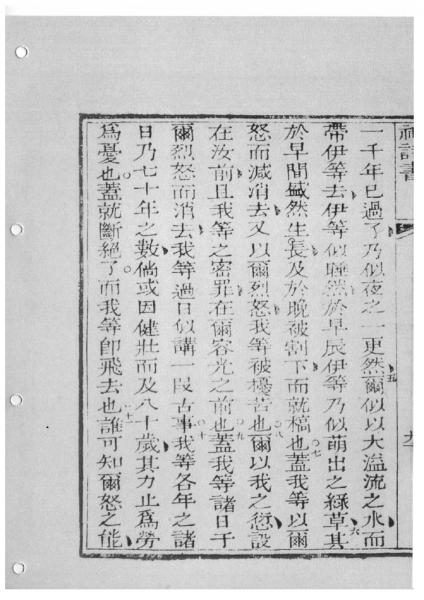 神詩書
一千年已過了乃似夜之一更然爾似以大溢流之水而
五
帶伊等去伊等似睡然於早辰伊等乃似萌出之綠草其
六
於早間盛然生長及於晚被割下而就槁也蓋我等以爾
○七
怒而滅消去又以爾烈怒我等被擾苦也爾以我之愆設
○八
在汝前且我等之密罪在爾容光之前也蓋我等諸日于
○九
爾烈怒而消去我等過日似講一段古事我等各年之諸
○十
日乃七十年之數倘或因健壯而及八十歲其力止為勞
為憂也蓋就斷絕了而我等即飛去也誰可知爾怒之能
十一